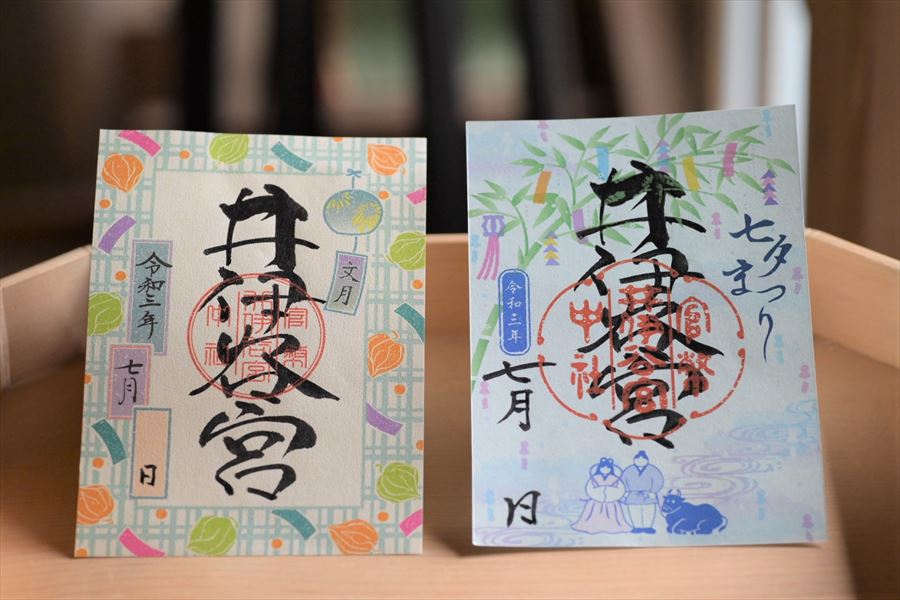 井伊谷宮
文月
令和三年
七月
日
官幣
井伊谷宮
中社
七夕まつり
井伊谷宮
令和三年
七月
日
官幣
井伊谷宮
中社